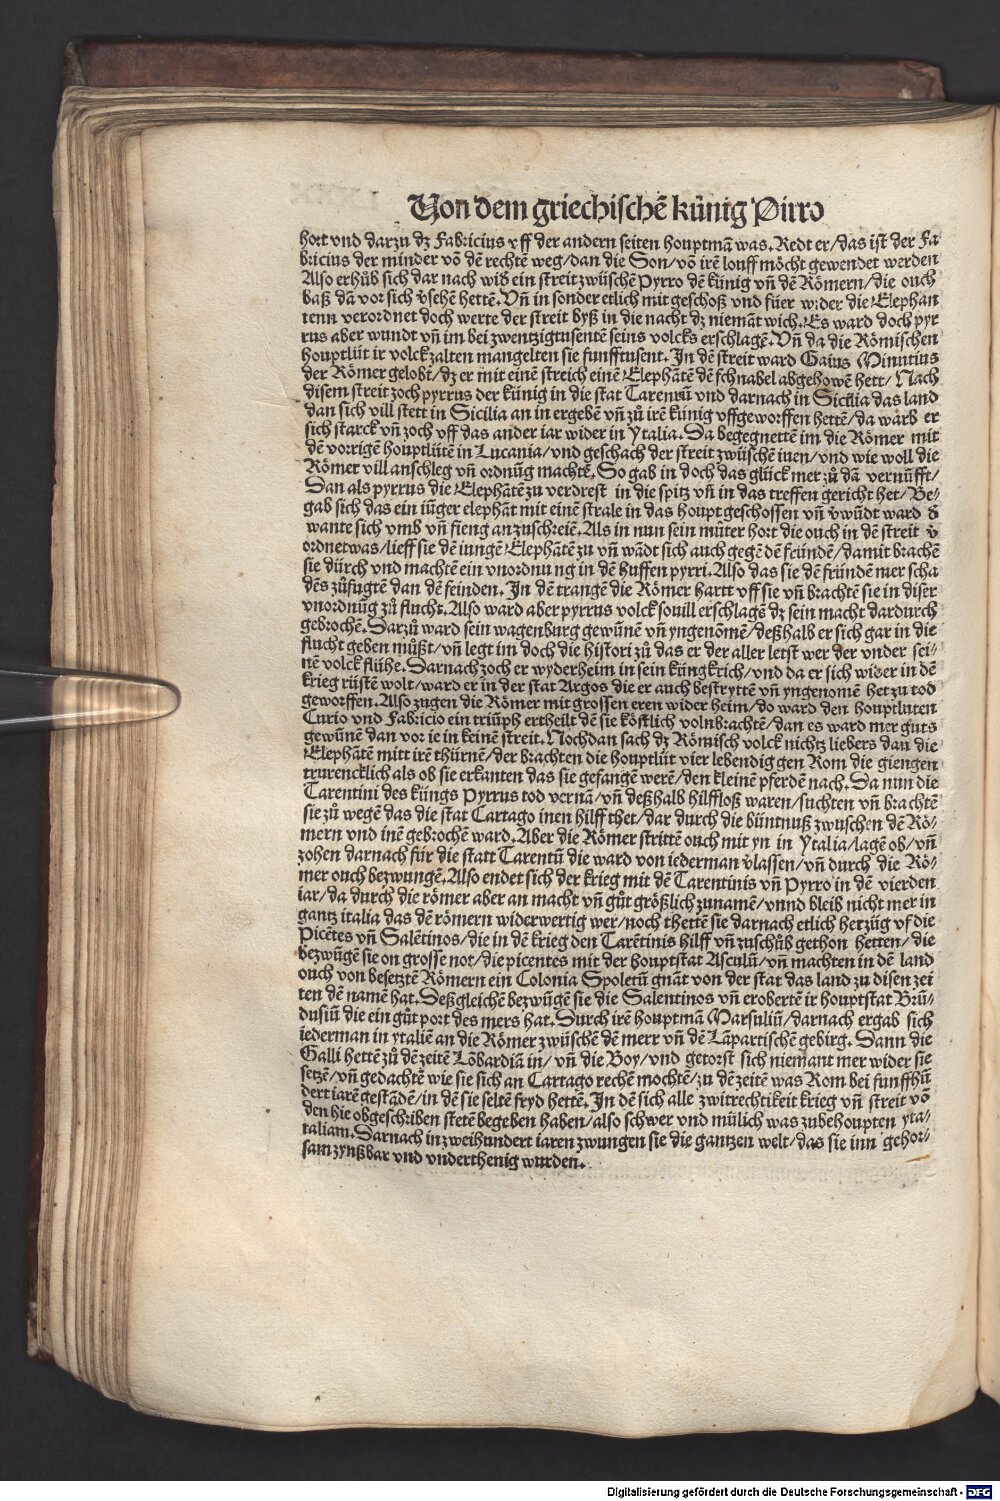 Von dem griechischē künig Pirro
hort vnd darzu dz Fabricius vff der andern seiten houptmā was. Redt er/das ist der Fa
bricius der minder vō dē rechtē weg/dan die Son/vō irē louff möcht gewendet werden
Also erhůb sich dar nach wid̄ ein streit zwüschē Pyrro dē künig vn̄ dē Römern/die ouch
baß dā vor sich v̄sehē hettē. Vn̄ in sonder etlich mit geschoß vnd füer wider die Elephan
tenn verordnet doch werte der streit byß in die nacht dz niemāt wich. Es ward doch pyr
rus aber wundt vn̄ im bei zwentzigtusentē seins volcks erschlagē. Vn̄ da die Römischen
houptlüt ir volck zalten mangelten sie funfftusent. In dē streit ward Gaius Minutius
der Römer gelobt/dz er mit einē streich einē Elephātē dē schnabel abgehowē hett/Nach
disem streit zoch pyrrus der künig in die stat Tarentū vnd darnach in Sicilia das land
dan sich vill stett in Sicilia an in ergebē vn̄ zů irē künig vffgeworffen hettē/da warb er
sich starck vn̄ zoch vff das ander iar wider in Ytalia. Da begegnettē im die Römer mit
dē vorrigē houptlütē in Lucania/vnd geschach der streit zwüschē inen/vnd wie woll die
Römer vill anschleg vn̄ ordnūg machtē. So gab in doch das glück mer zů dā vernūfft/
Dan als pyrrus die Elephātē zu verdrest in die spitz vn̄ in das treffen gericht het/Be-
gab sich das ein iūger elephāt mit einē strale in das houpt geschossen vn̄ v̄wūdt ward d̄
wante sich vmb vn̄ fieng an zuschreiē. Als in nun sein můter hort die ouch in dē streit v̄
ordnet was/lieff sie dē iungē Elephātē zu vn̄ wādt sich auch gegē dē feündē/damit brachē
sie dürch vnd machtē ein vnordnu ng in dē huffen pyrri. Also das sie dē fründē mer scha
dēs zůfugtē dan dē feinden. In dē trangē die Römer hartt vff sie vn̄ brachtē sie in diser
vnordnūg zů flucht. Also ward aber pyrrus volck souill erschlagē dz sein macht dardurch
gebrochē. Darzů ward sein wagenburg gewūnē vn̄ yngenōmē/deßhalb er sich gar in die
flucht geben můßt/vn̄ legt im doch die histori zů das er der aller letst wer der vnder sei-
nē volck flühe. Darnach zoch er wyderheim in sein küngkrich/vnd da er sich wider in dē
krieg rüstē wolt/ward er in der stat Argos die er auch bestryttē vn̄ yngenomē het zu tod
geworffen. Also zugen die Römer mit grossen eren wider heim/do ward den houptluten
Curio vnd Fabricio ein triūph ertheilt dē sie köstlich volnbrachtē/dan es ward mer guts
gewūnē dan vor ie in keinē streit. Nochdan sach dz Römisch volck nichtz liebers dan die
Elephātē mitt irē thürnē/der brachten die houptlüt vier lebendig gen Rom die giengen
trurencklich als ob sie erkanten das sie gefangē werē/den kleinē pferdē nach. Da nun die
Tarentini des küngs Pyrrus tod vernā/vn̄ deßhalb hilffloß waren/suchten vn̄ brachtē
sie zů wegē das die stat Cartago inen hilff thet/dar durch die büntnuß zwuschen dē Rö-
mern vnd inē gebrochē ward. Aber die Römer strittē ouch mit yn in Ytalia/lagē ob/vn̄
zohen darnach für die statt Tarentū die ward von iederman v̄lassen/vn̄ durch die Rö-
mer ouch bezwungē. Also endet sich der krieg mit dē Tarentinis vn̄ Pyrro in dē vierden
iar/da durch die römer aber an macht vn̄ gůt größlich zunamē/vnnd bleib nicht mer in
gantz italia das dē römern widerwertig wer/noch thettē sie darnach etlich herzüg vf die
Picētes vn̄ Salētinos/die in dē krieg den Tarētinis hilff vn̄ zuschůb gethon hetten/die
bezwūgē sie on grosse not/die picentes mit der houptstat Asculū/vn̄ machten in dē land
ouch von besetztē Römern ein Colonia Spoletū gnāt von der stat das land zu disen zei
ten dē namē hat. Deßgleichē bezwūgē sie die Salentinos vn̄ erobertē ir houptstat Brū-
dusiū die ein gůt port des mers hat. Durch irē houptmā Marsuliū/darnach ergab sich
iederman in ytaliē an die Römer zwüschē dē merr vn̄ dē Lāpartischē gebirg. Dann die
Galli hettē zů dē zeitē Lōbardiā in/vn̄ die Boy/vnd getorst sich niemant mer wider sie
setzē/vn̄ gedachtē wie sie sich an Cartago rechē mochtē/zu dē zeitē was Rom bei funffhū
dert iarē gestādē/in dē sie seltē fryd hettē. In dē sich alle zwitrechtikeit krieg vn̄ streit vō
den hie obgeschriben stetē begeben haben/also schwer vnd mülich was zubehoupten yta-
taliam. Darnach in zweihundert iaren zwungen sie die gantzen welt/das sie inn gehor-
sam zynßbar vnd vnderthenig wurden.
Digitalisierung gefördert durch die Deutsche Forschungsgemeinschaft - DFG